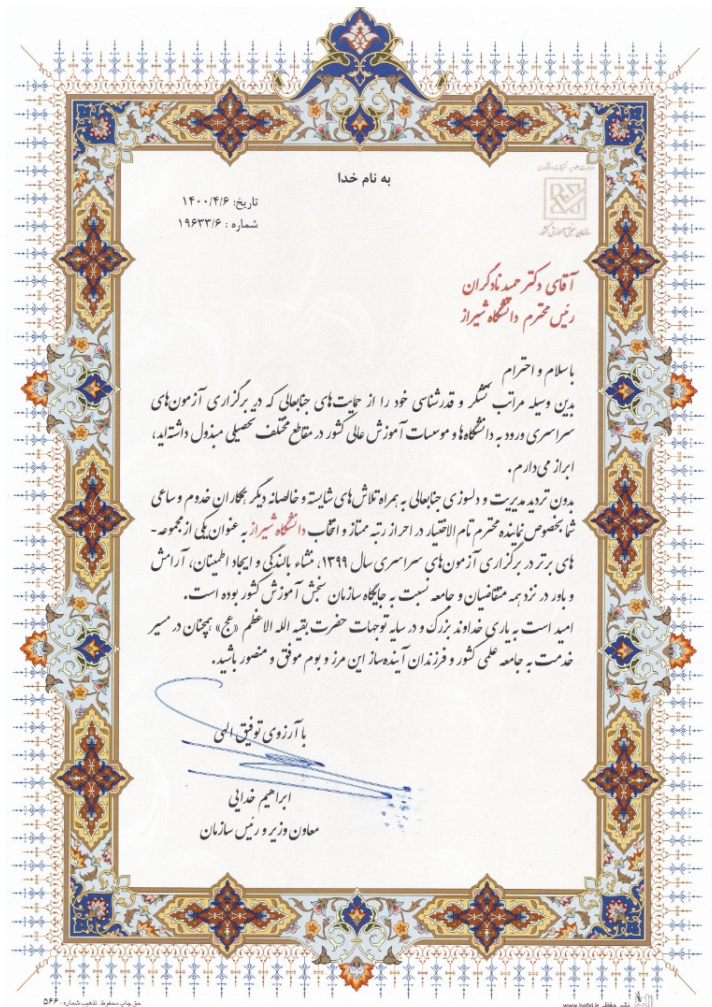 به نام خدا
تاریخ: ۱۴۰۰/۴/۶
شماره : ۱۹۶۳۳/۶
وزارت علوم، تحقیقات و فناوری
سازمان سنجش آموزش کشور
آقای دکتر حمید نادگران
رئیس محترم دانشگاه شیراز
باسلام و احترام
بدین وسیله مراتب تشکر و قدرشناسی خود را از حمایت‌های جنابعالی که در برگزاری آزمون‌های
سراسری ورود به دانشگاه‌ها و موسسات آموزش عالی کشور در مقاطع مختلف تحصیلی مبذول داشته‌اید،
ابراز می‌دارم.
بدون تردید مدیریت و دلسوزی جنابعالی به همراه تلاش‌های شایسته و خالصانه دیگر همکاران خدوم و ساعی
شما بخصوص نماینده محترم تام الاختیار در احراز رتبه ممتاز و انتخاب دانشگاه شیراز به عنوان یکی از مجموعه-
های برتر در برگزاری آزمون‌های سراسری سال ۱۳۹۹، منشاء بالندگی و ایجاد اطمینان، آرامش
و باور در نزد همه متقاضیان و جامعه نسبت به جایگاه سازمان سنجش آموزش کشور بوده است.
امید است به یاری خداوند بزرگ و در سایه توجهات حضرت بقیه الله الاعظم «عج» همچنان در مسیر
خدمت به جامعه علمی کشور و فرزندان آینده‌ساز این مرز و بوم موفق و منصور باشید.
با آرزوی توفیق الهی
ابراهیم خدایی
معاون وزیر و رئیس سازمان
حق چاپ محفوظ. تذهیب شماره: ۵۶۶
www.hafizi.ir